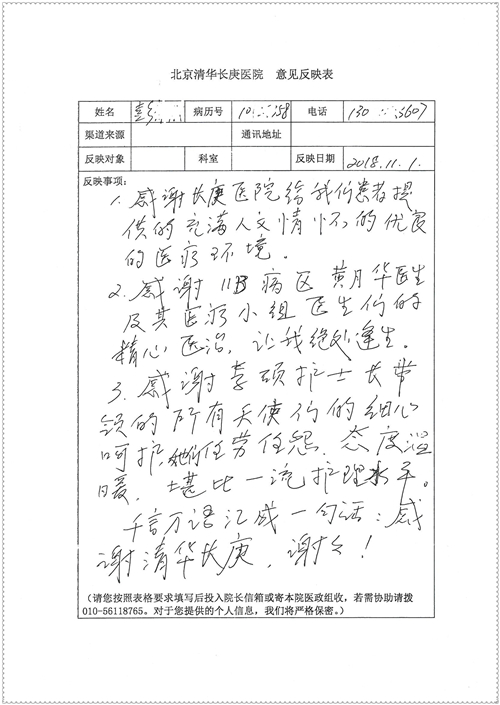 北京清华长庚医院 意见反映表
姓名 彭 病历号 10 58 电话 130 5607
渠道来源 通讯地址
反映对象 科室 反映日期 2018.11.1.
反映事项:
1. 感谢长庚医院给我们患者提
供的充满人文情怀的优良
的医疗环境。
2. 感谢11B病区黄月华医生
及其医疗小组医生们的
精心医治,让我绝处逢生。
3. 感谢李硕护士长带
领的所有天使们的细心
呵护,她们任劳任怨,态度温
暖,堪比一流护理水平。
千言万语汇成一句话:感
谢清华长庚,谢谢!
(请您按照表格要求填写后投入院长信箱或寄本院医政组收,若需协助请拨
010-56118765。对于您提供的个人信息,我们将严格保密。)